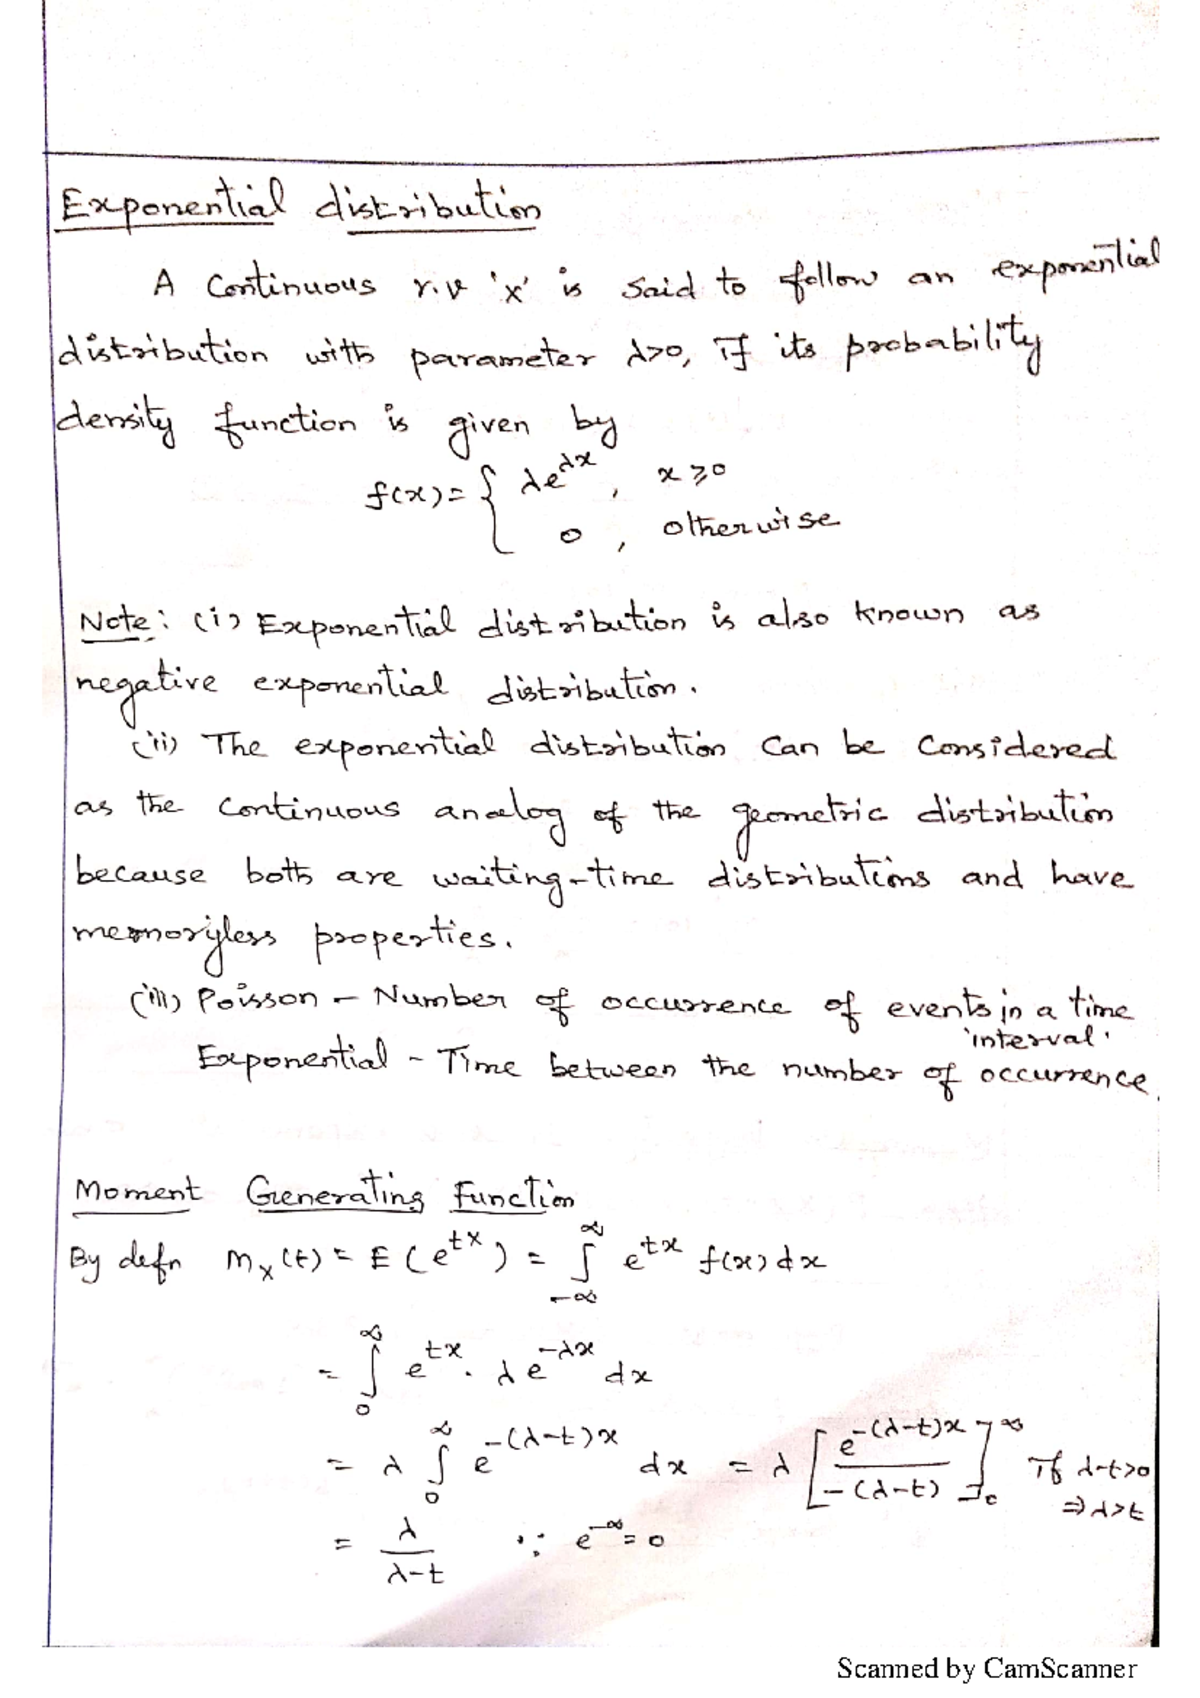 Exponential distribution
A Continuous r.v 'x' is said to follow an exponential
distribution with parameter λ>0, if its probability
density function is given by
f(x) = { λe^{λx} , x ≥ 0
0 , otherwise
Note: (i) Exponential distribution is also known as
negative exponential distribution.
(ii) The exponential distribution can be considered
as the continuous analog of the geometric distribution
because both are waiting-time distributions and have
memoryless properties.
(iii) Poisson - Number of occurrence of events in a time
interval.
Exponential - Time between the number of occurrence.
Moment Generating Function
By defn M_x(t) = E(e^{tx}) = ∫_{-∞}^{∞} e^{tx} f(x) dx
= ∫_0^∞ e^{tx} . λe^{-λx} dx
= λ ∫_0^∞ e^{-(λ-t)x} dx = λ [e^{-(λ-t)x} / -(λ-t)]_0^∞ If λ-t>0
⇒ λ>t
= λ / (λ-t) ∵ e^{-∞} = 0
Scanned by CamScanner